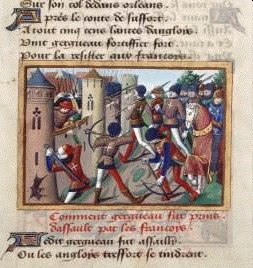 Sur son col dedans orleans.
Apres le conte de suffort.
A tout cinq cens lances danglois
Vint gergueau fortiffier fort.
Pour la resister aux francois.
Comment gergueau fut prins
dassault par les francois.
Ledit gergueau fut assailly.
Ou les anglois tresfort se tindrent.